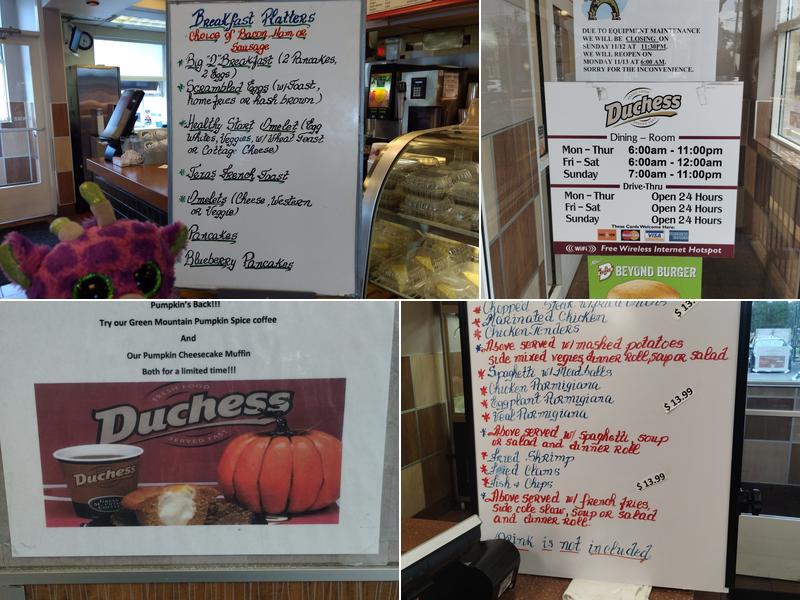 Breakfast Platters
Choice of Bacon, Ham, or
Sausage
* Big "D" Breakfast (2 Pancakes,
2 Eggs)
* Scrambled Eggs (w/Toast,
home fries or hash brown)
* Healthy Start Omelet (Egg
Whites, Veggies, w/Wheat Toast
or Cottage Cheese)
* Texas French Toast
* Omelets (Cheese, Western
or Veggie)
Pancakes
Blueberry Pancakes
DUE TO EQUIPMENT MAINTENANCE
WE WILL BE CLOSING ON
SUNDAY 11/12 AT 11:30PM.
WE WILL REOPEN ON
MONDAY 11/13 AT 6:00 AM.
SORRY FOR THE INCONVENIENCE.
Duchess
Dining – Room
Mon – Thur 6:00am - 11:00pm
Fri – Sat 6:00am - 12:00am
Sunday 7:00am - 11:00pm
Drive-Thru
Mon – Thur Open 24 Hours
Fri – Sat Open 24 Hours
Sunday Open 24 Hours
These Cards Welcome Here:
VISA
WiFi Free Wireless Internet Hotspot
BEYOND BURGER
Pumpkin's Back!!!
Try our Green Mountain Pumpkin Spice coffee
And
Our Pumpkin Cheesecake Muffin
Both for a limited time!!!
FRESH FOOD
Duchess
SERVED FAST
Duchess
* Chopped Steak
* Marinated Chicken
* Chicken Tenders
* Above served w/ mashed potatoes
side mixed vegies, dinner roll, soup or salad
* Spaghetti w/ Meatballs
* Chicken Parmigiana
* Eggplant Parmigiana
* Veal Parmigiana
$ 13.99
* Above served w/ Spaghetti, soup
or salad and dinner roll
* Fried Shrimp
* Fried Clams
* Fish & Chips
$ 13.99
* Above served w/ french fries,
side cole slaw, soup or salad
and dinner roll.
Drink is not included